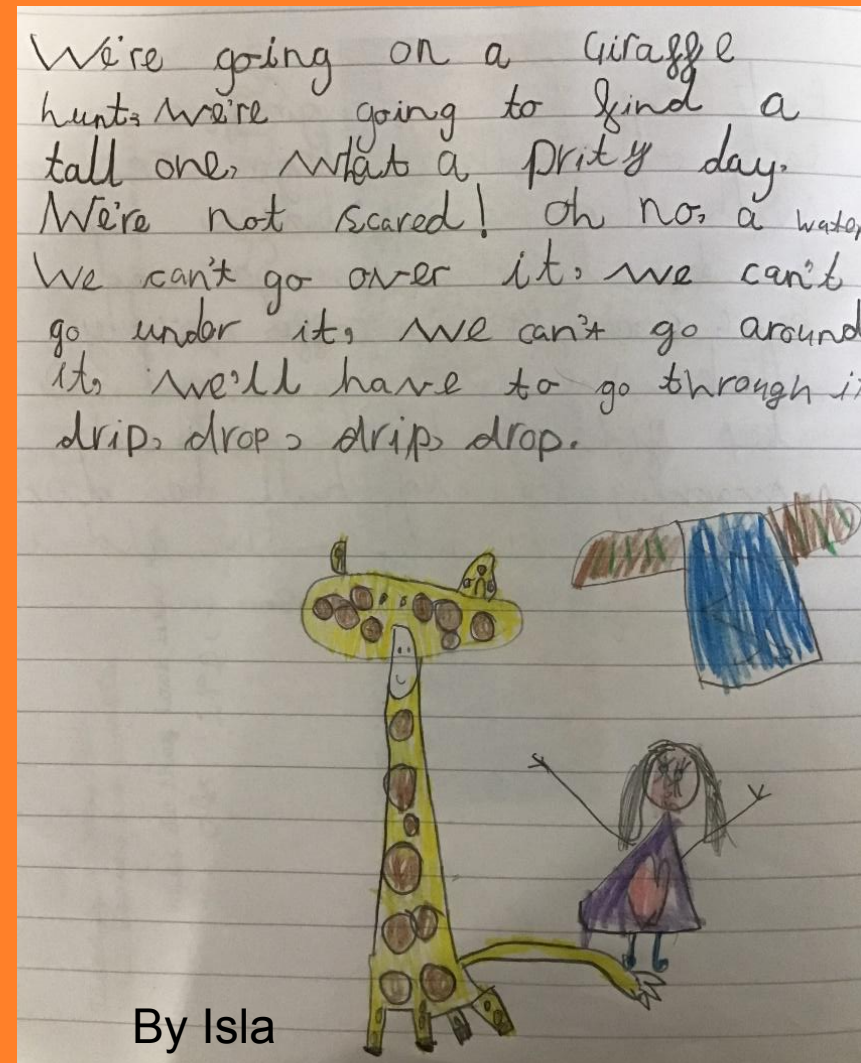 We're going on a Giraffe
hunt, We're going to find a
tall one, What a prity day.
We're not scared! Oh no, a
We can't go over it, we can't
go under it, we can't go around
it, we'll have to go through
drip, drop, drip, drop.
By Isla